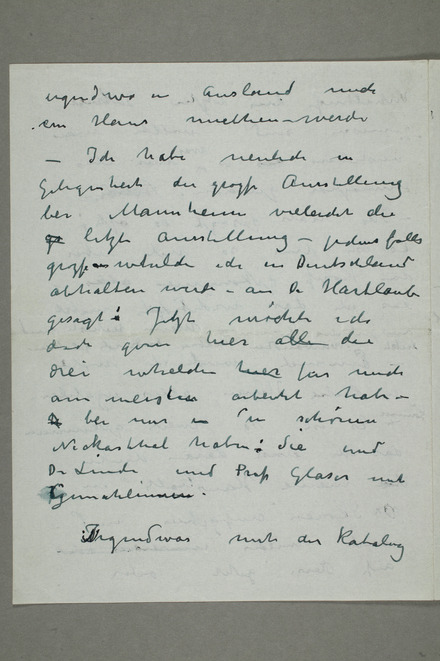 irgendwo in Ausland mich
ein Haus miethen werde
– Ich habe neulich in
Gelegenheit der grosse Ausstellung
bei Mannheim vieleicht die
letzte Ausstellung – jedenfalls
grosse welche ich in Deutschland
abhalten werde – an Dr Hartlaub
gesagt: Jetzt möchte ich
doch gern hier alle die
drei welche hier für mich
am meisten arbeitet habe –
bei mir in schönen
Neckarthal haben: Sie und
Dr Linde und Prof Glaser mit
Gemahlinnen.
Irgendwas mit der Katalog